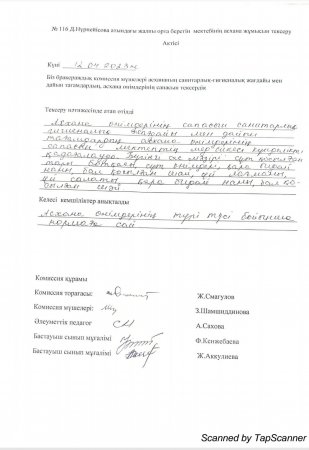 № 116 Д.Нүрпейісова атындағы жалпы орта беретін мектебінің асхана жұмысын тексеру
Актісі
Күні 12.04.2023ж
Біз бракераждық комиссия мүшелері асхананың санитарлық-гигиеналық жағдайы мен
дайын тағамдардың, асхана өнімдерінің сапасын тексердік
Тексеру нәтижесінде атап өтілді
Асхана өнімдерінің сапасын санитарлық
гигиеналық жағдайы мен дайын
тағамдардың асхана өнімдерінің
сапасын мектептің медбикесі
қадағалауда Бүгінгі ас мәзірі сүт қосылған
ботқасы сүт өнімдері қара бидай
наны, бал қосылған шай, үй лағманы,
күн салаты, қара бидай наны, бал қо-
сылған шай
Келесі кемшіліктер анықталды
Асхана өнімдерінің түрі түсі бойынша
нормаға сай
Комиссия құрамы
Комиссия торағасы: Ж.Смагулов
Комиссия мүшелері: З.Шамшидинова
Әлеуметтік педагог А.Сахова
Бастауыш сынып мұғалімі Ф.Кенжебаева
Бастауыш сынып мұғалімі Ж.Аккулиева
Scanned by TapScanner